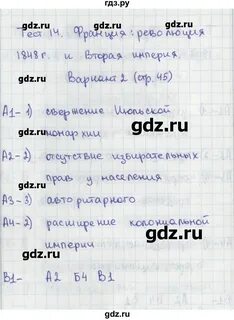 гдз.ру
Тест 14. Франция: революция
1848 г. и Вторая империя
Вариант 2 (стр. 45)
gdz.ru
А1 - 1) свержение Июльской
монархии
gdz.ru
А2 - 2) отсутствие избирательных
прав у населения
gdz.ru
А3 - 3) авторитарного
А4 - 2) расширение колониальной
gdz.ru
империи
В1 - А2 Б4 В1
gdz.ru